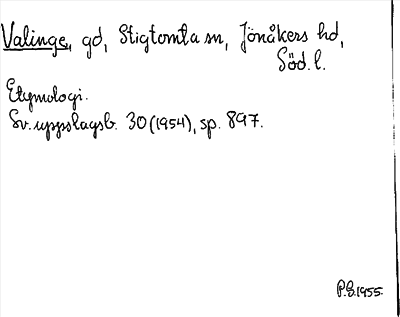 Valinge, gd, Stigtomta sn, Jönåkers hd,
Söd. l.
Etymologi.
Sv. uppslagsb. 30 (1954), sp. 897.
P.S. 1955.